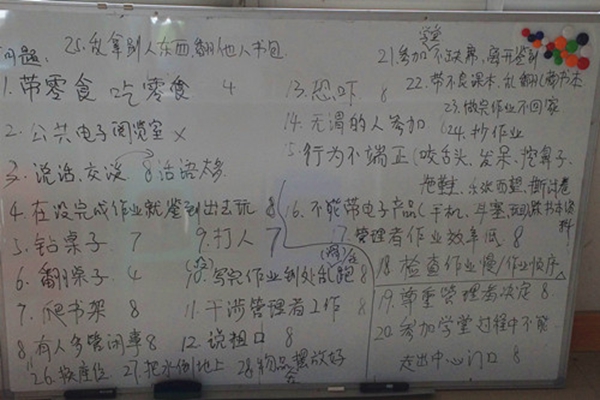 问题:
25.乱拿别人东西,翻他人书包
1.带零食 吃零食 4
2.公共电子阅览室 x
3.说话、交谈 8 话语太多
4.在没完成作业就签到出去玩 8
5.钻桌子 7
9.打人 7
6.翻桌子 4
10.写完作业到处乱跑 8
(没)
7.爬书架 8
11.干涉管理者工作 8
8.有人多管闲事 8
12.说粗口 8
26.换座位
27.把水倒地上
28.物品摆放好
13.恐吓 8
14.无谓的人参加
15.行为不端正(咬舌头、发呆、挖鼻子、
拖鞋、东张西望、撕试卷
16.不能带电子产品(手机、耳塞、
17.管理者作业效率低 8
18.检查作业慢/作业顺序
19.尊重管理者决定 8
20.参加学堂过程中不能
走出中心门口 8
学堂
21.参加不缺席,离开签到
22.带不良课本,乱翻
23.做完作业不回家
24.抄作业